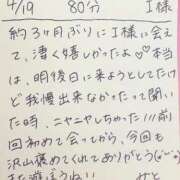 4/19 80分 I様
約3ヶ月ぶりにI様に会え
て、凄く嬉しかったよ♡♡本当
は、明後日に来ようとしてたけ
ど我慢出来なかったって聞い
た時、ニヤニヤしちゃった!!!前
回初めて会ってから、今回も
沢山褒めてくれてありがとう(´︶`)
また遊ぼうね!! みと